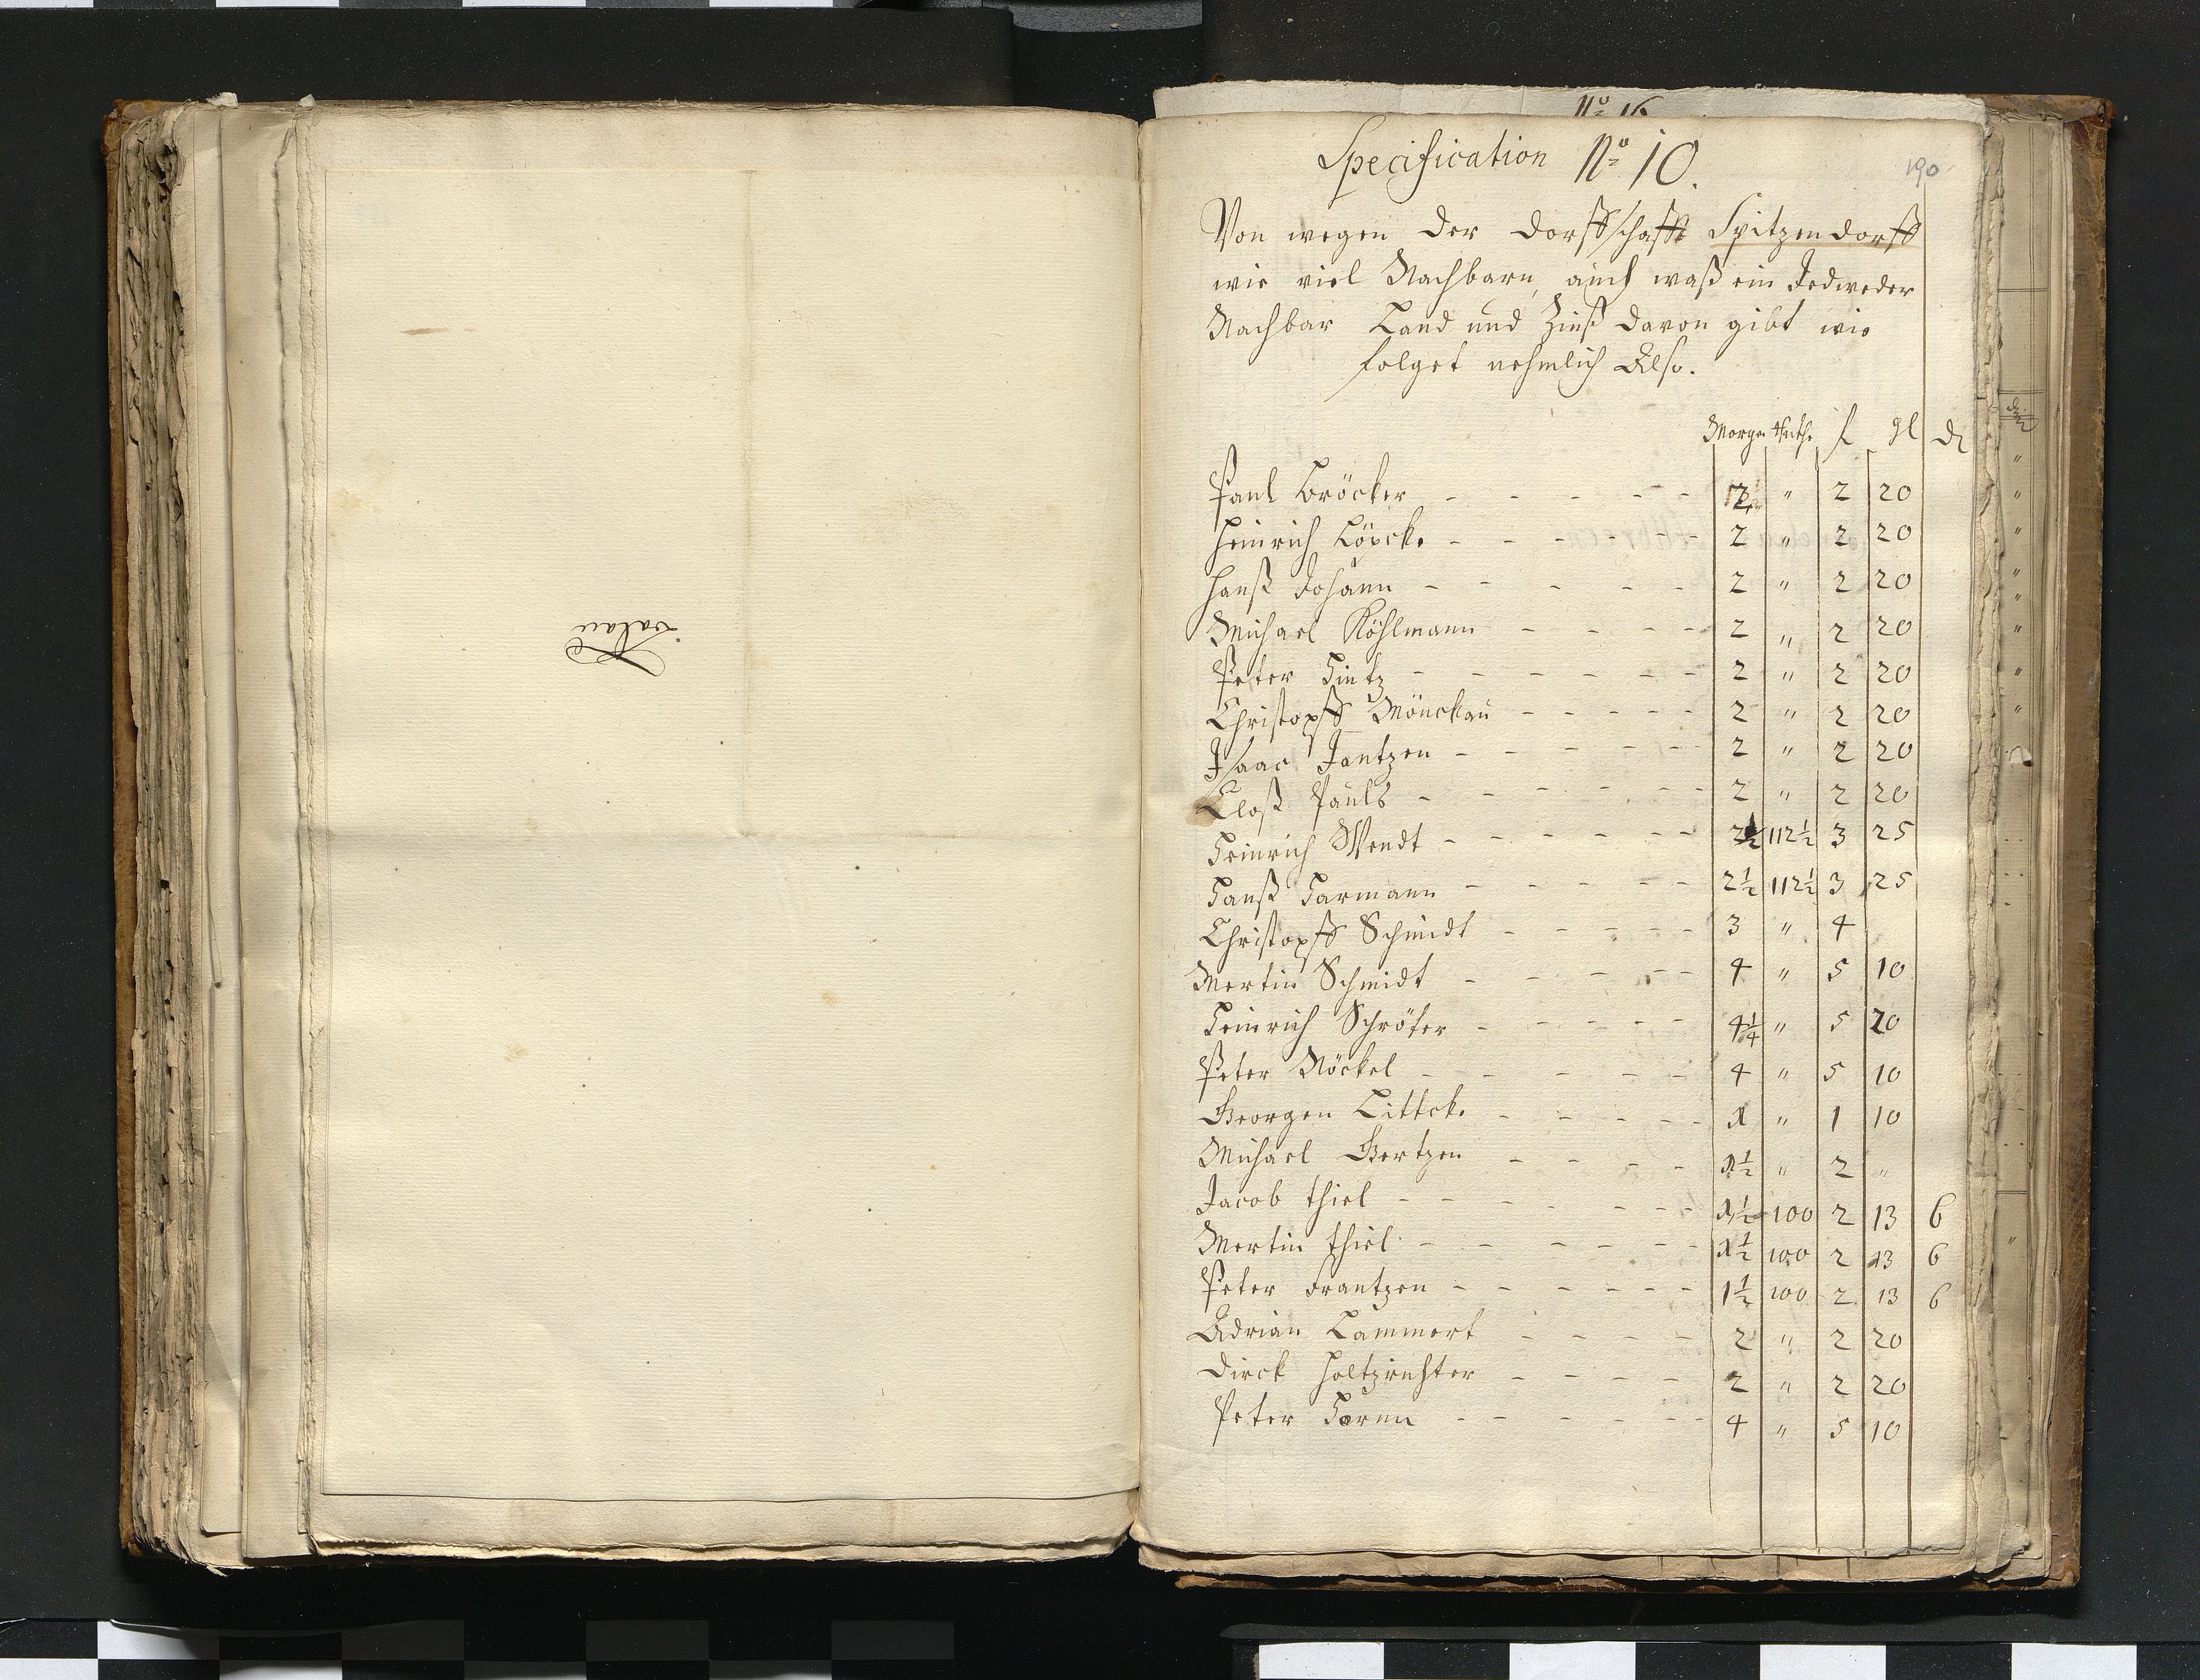 Specification No 10.
190
Von wegen der dorffschafft Spitzendorff
wie viel Nachbarn, auch waß ein Jedweder
Nachbar Land und Zinß davon gibt wie
folget nehmlich Also.
Morgen Ruth. f gl d
Paul Kröcker - - - - - 2 " 2 20
Heinrich Löpcke - - - - - - 2 " 2 20
Hanß Johann - - - - - 2 " 2 20
Michael Köhlmann - - - - - 2 " 2 20
Peter Hintz - - - - - - 2 " 2 20
Christopff Mönckau - - - - - 2 " 2 20
Isaac Jantzen - - - - - - 2 " 2 20
Cloß Pauls - - - - - - - 2 " 2 20
Heinrich Wendt - - - - - - 2½ 112½ 3 25
Hanß Harmann - - - - - 2½ 112½ 3 25
Christopff Schmidt - - - - - 3 " 4
Mertin Schmidt - - - - - 4 " 5 10
Heinrich Schröter - - - - - 4¼ " 5 20
Peter Nöckel - - - - - - 4 " 5 10
Georgen Littcke - - - - - 1 " 1 10
Michael Gertzen - - - - 1½ " 2 "
Jacob Thiel - - - - - - - 1½ 100 2 13 6
Mertin Thiel - - - - - - 1½ 100 2 13 6
Peter Frantzen - - - - - - 1½ 100 2 13 6
Adrian Lammert - - - - 2 " 2 20
Dirck Holtzrichter - - - - 2 " 2 20
Peter Harm - - - - - - 4 " 5 10